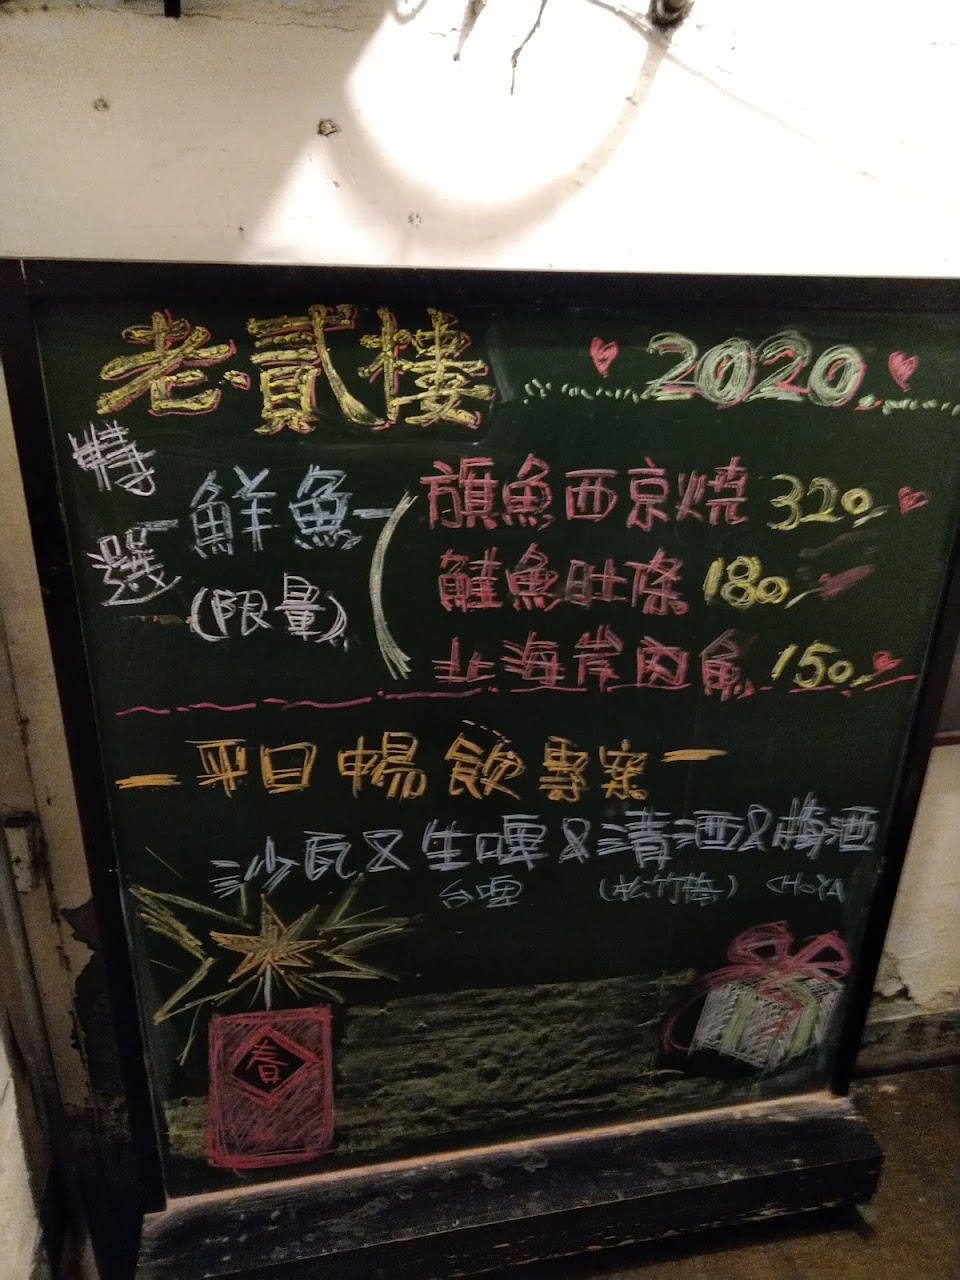 老·貳樓 2020
特選
鮮魚
(限量)
旗魚西京燒 320
鮭魚肚條 180
北海岸肉魚 150
平日暢飲專案
沙瓦&生啤&清酒&梅酒
台啤 (松竹梅) CHOYA
春